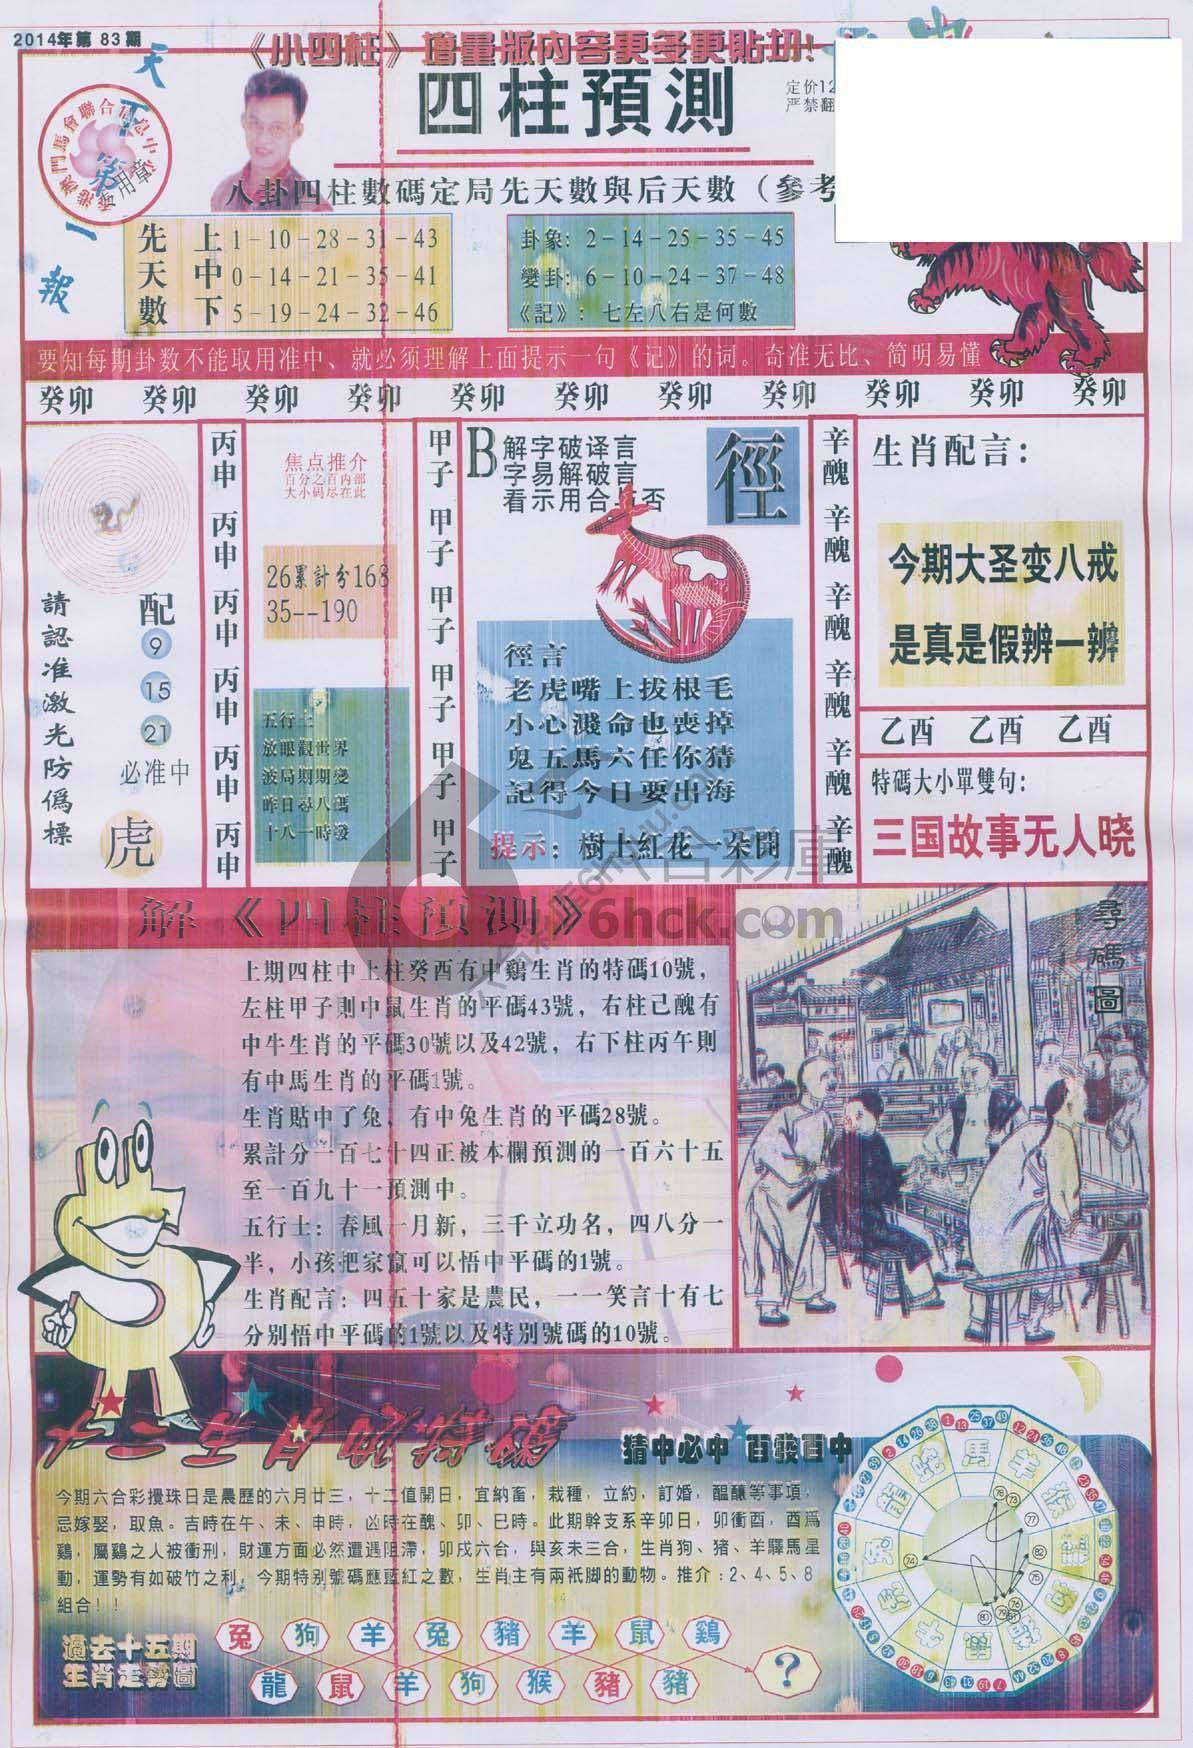 2014年第 83 期
《小四柱》增量版内容更多更貼切!
天下第一報
四柱預測
定价12
严禁翻
八卦四柱數碼定局先天數與后天數（參考
先天數
上 1-10-28-31-43
中 0-14-21-35-41
下 5-19-24-32-46
卦象: 2-14-25-35-45
變卦: 6-10-24-37-48
《記》: 七左八右是何數
要知每期卦数不能取用准中、就必须理解上面提示一句《记》的词。奇准无比、简明易懂
癸卯 癸卯 癸卯 癸卯 癸卯 癸卯 癸卯 癸卯 癸卯 癸卯 癸卯
請認准激光防僞標
配
9
15
21
必准中
虎
丙申 丙申 丙申 丙申 丙申 丙申
焦点推介
百分之百内部
大小码尽在此
26累計分168
35--190
五行土
放眼觀世界
波局期期變
昨日尋八碼
十八一時發
甲子 甲子 甲子 甲子 甲子 甲子
B
解字破译言
字易解破言
看示用合与否
徑
徑言
老虎嘴上拔根毛
小心濺命也喪掉
鬼五馬六任你猜
記得今日要出海
提示: 樹上紅花一朵開
辛醜 辛醜 辛醜 辛醜 辛醜 辛醜
生肖配言:
今期大圣变八戒
是真是假辨一辨
乙酉 乙酉 乙酉
特碼大小單雙句:
三国故事无人晓
解《四柱預測》
上期四柱中上柱癸酉有中鷄生肖的特碼10號,
左柱甲子則中鼠生肖的平碼43號, 右柱己醜有
中牛生肖的平碼30號以及42號, 右下柱丙午則
有中馬生肖的平碼1號。
生肖貼中了兔, 有中兔生肖的平碼28號。
累計分一百七十四正被本欄預測的一百六十五
至一百九十一預測中。
五行士: 春風一月新, 三千立功名, 四八分一
半, 小孩把家竄可以悟中平碼的1號。
生肖配言: 四五十家是農民, 一一笑言十有七
分别悟中平碼的1號以及特别號碼的10號。
尋碼圖
猜中必中 百發百中
今期六合彩攪珠日是農歷的六月廿三, 十二值開日, 宜納畜, 栽種, 立約, 訂婚, 醞釀等事項,
忌嫁娶, 取魚。吉時在午、未、申時, 凶時在醜、卯、巳時。此期幹支系辛卯日, 卯衝酉, 酉爲
鷄, 屬鷄之人被衝刑, 財運方面必然遭遇阻滯, 卯戌六合, 與亥未三合, 生肖狗、猪、羊驛馬星
動, 運勢有如破竹之利, 今期特别號碼應藍紅之數, 生肖主有兩衹脚的動物。推介:2、4、5、8
組合!!
過去十五期
生肖走勢圖
兔 狗 羊 兔 豬 羊 鼠 鷄
龍 鼠 羊 狗 猴 豬 豬
?
6hck.com